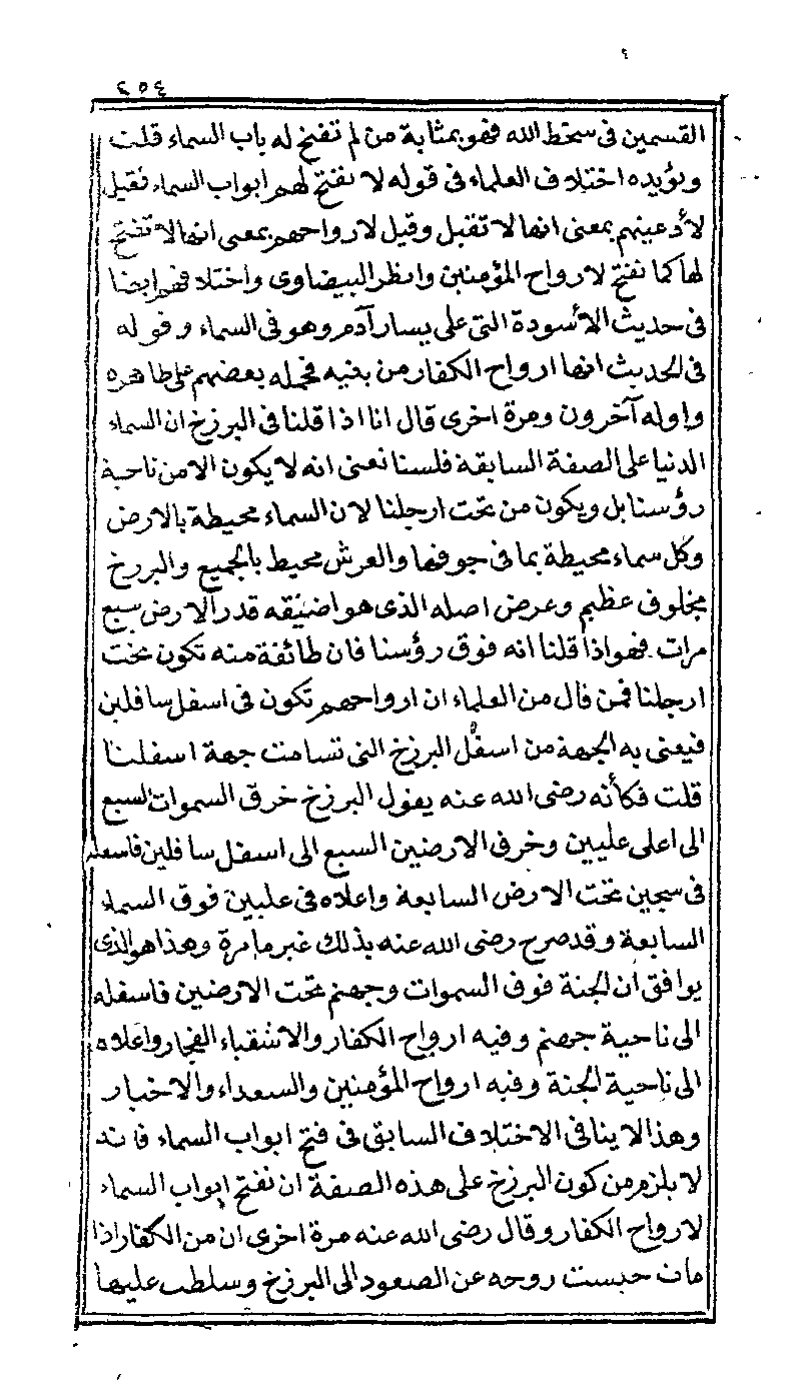 ٢٥٤
القسمين في سخط الله فهو بمثابة من لم تفتح له باب السماء قلت
ويؤيده اختلاف العلماء في قوله لا تفتح لهم ابواب السماء فقيل
لأدعيتهم بمعنى انها لا تقبل وقيل لارواحهم بمعنى انها لا تفتح
لها كما تفتح لارواح المؤمنين وانظر البيضاوى واختلافهم ايضا
في حديث الأسودة التي على يسار آدم وهو في السماء وقوله
في الحديث انها ارواح الكفار من بنيه فحمله بعضهم على ظاهره
واوله آخرون ومرة اخرى قال انا اذا قلنا في البرزخ ان السماء
الدنيا على الصفة السابقة فلسنا نعنى انه لا يكون الا من ناحية
رؤسنا بل ويكون من تحت ارجلنا لان السماء محيطة بالارض
وكل سماء محيطة بما في جوفها والعرش محيط بالجميع والبرزخ
مخلوق عظيم وعرض اصله الذى هو اضيقه قدر الارض سبع
مرات فهو اذا قلنا انه فوق رؤسنا فان طائفة منه تكون تحت
ارجلنا فمن قال من العلماء ان ارواحهم تكون في اسفل سافلين
فيعنى به الجهة من اسفل البرزخ التى تسامت جهة اسفلنا
قلت فكأنه رضى الله عنه يقول البرزخ خرق السموات السبع
الى اعلى عليين وخرق الارضين السبع الى اسفل سافلين فاسفله
في سجين تحت الارض السابعة واعلاه في عليين فوق السماء
السابعة وقد صرح رضى الله عنه بذلك غير ما مرة وهذا هو الذى
يوافق أن الجنة فوق السموات وجهنم تحت الارضين فاسفله
الى ناحية جهنم وفيه ارواح الكفار والاشقياء الفجار واعلاه
الى ناحية الجنة وفيه ارواح المؤمنين والسعداء والاخيار
وهذا لا ينافى الاختلاف السابق في فتح ابواب السماء فانه
لا يلزم من كون البرزخ على هذه الصفة ان تفتح ابواب السماء
لارواح الكفار وقال رضى الله عنه مرة اخرى ان من الكفار اذا
مات حبست روحه عن الصعود الى البرزخ وسلطت عليها